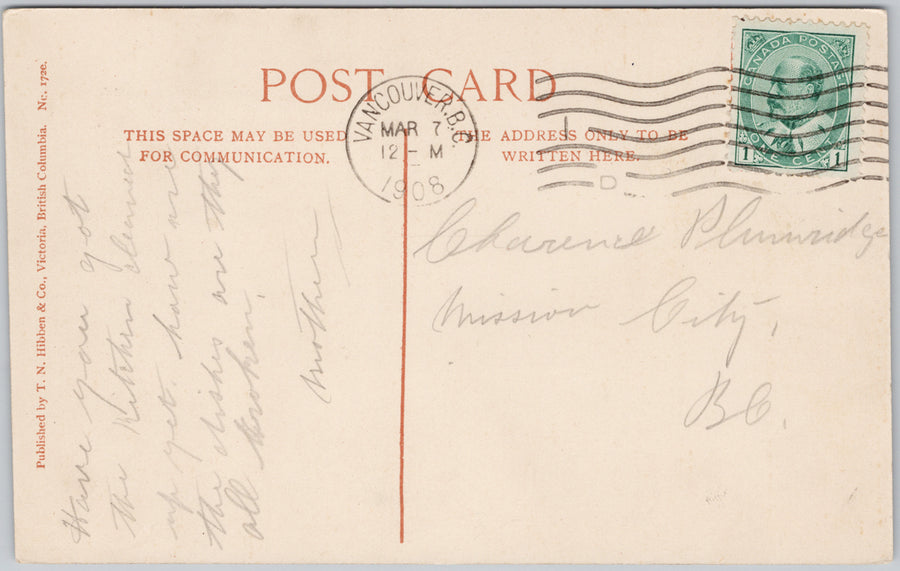 POST CARD
THIS SPACE MAY BE USED
FOR COMMUNICATION.
THE ADDRESS ONLY TO BE
WRITTEN HERE.
VANCOUVER, B.C.
MAR 7
12 - M
1908
CANADA POSTAGE
ONE CENT
1 1
D
Published by T. N. Hibben & Co., Victoria, British Columbia. No. 172e.
Have you got
the Kitchen cleaned
up yet. how are
the dishes are they
all broken.
Mother
Clarence Plumridge
Mission City,
BC.